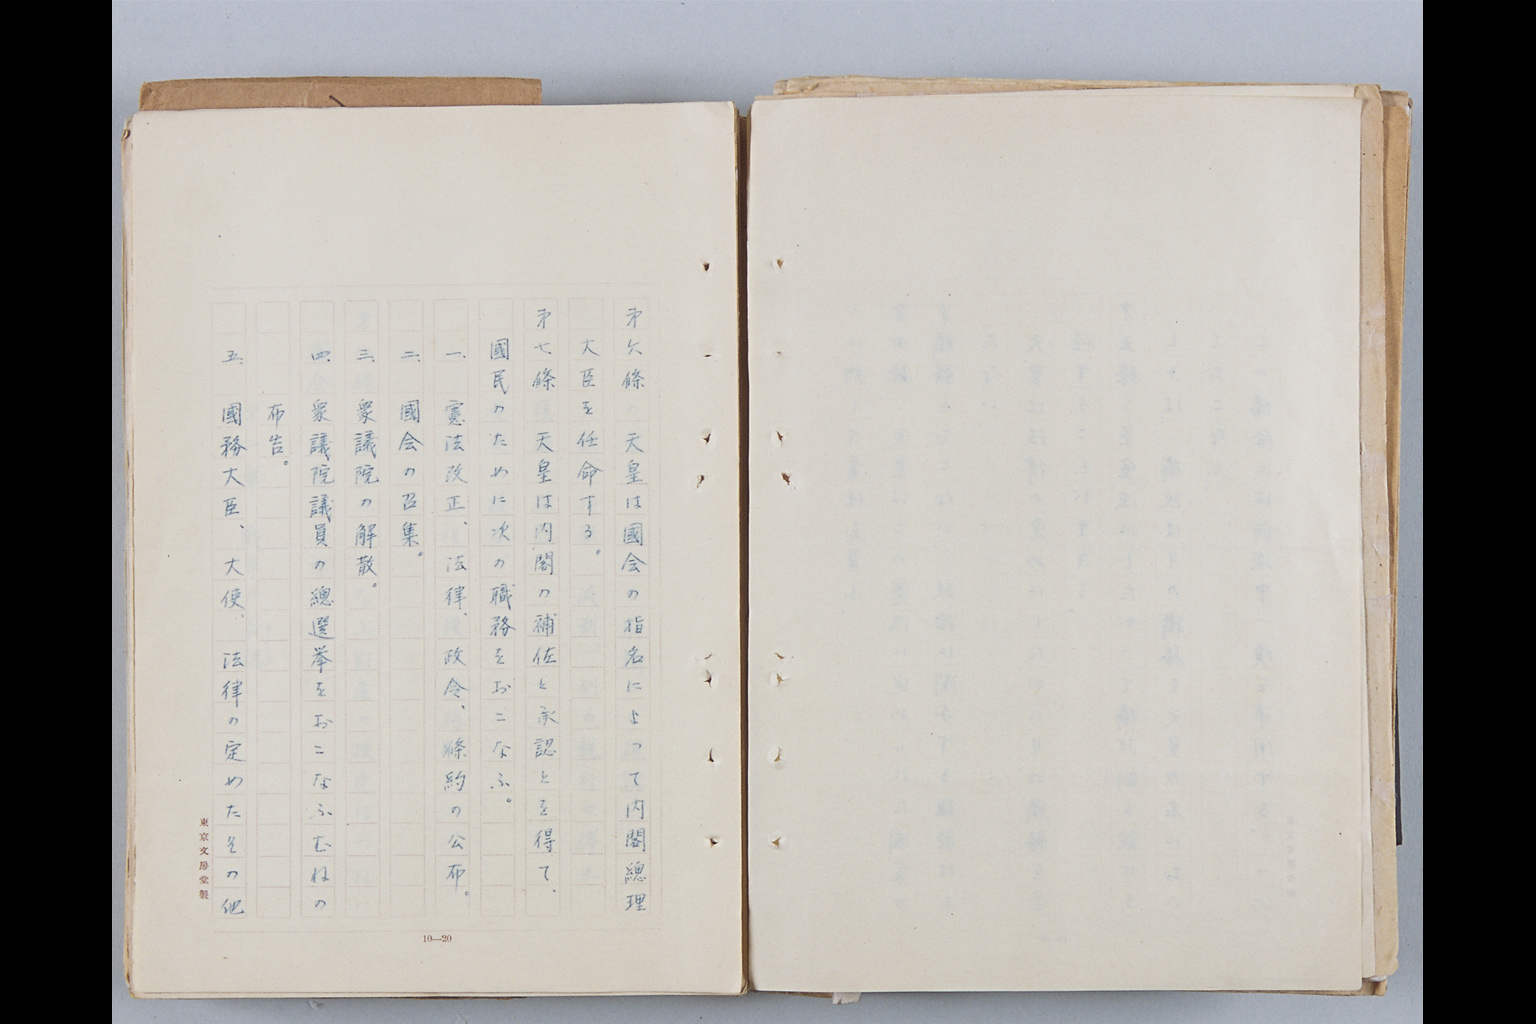 第六條　天皇は國会の指名によつて内閣總理
大臣を任命する。
第七條　天皇は内閣の補佐と承認とを得て、
國民のために次の職務をおこなふ。
一、憲法改正、法律、政令、條約の公布。
二、國会の召集。
三、衆議院の解散。
四、衆議院議員の總選挙をおこなふむねの
布告。
五、國務大臣、大使、法律の定めたその他
東京文房堂製
10—20